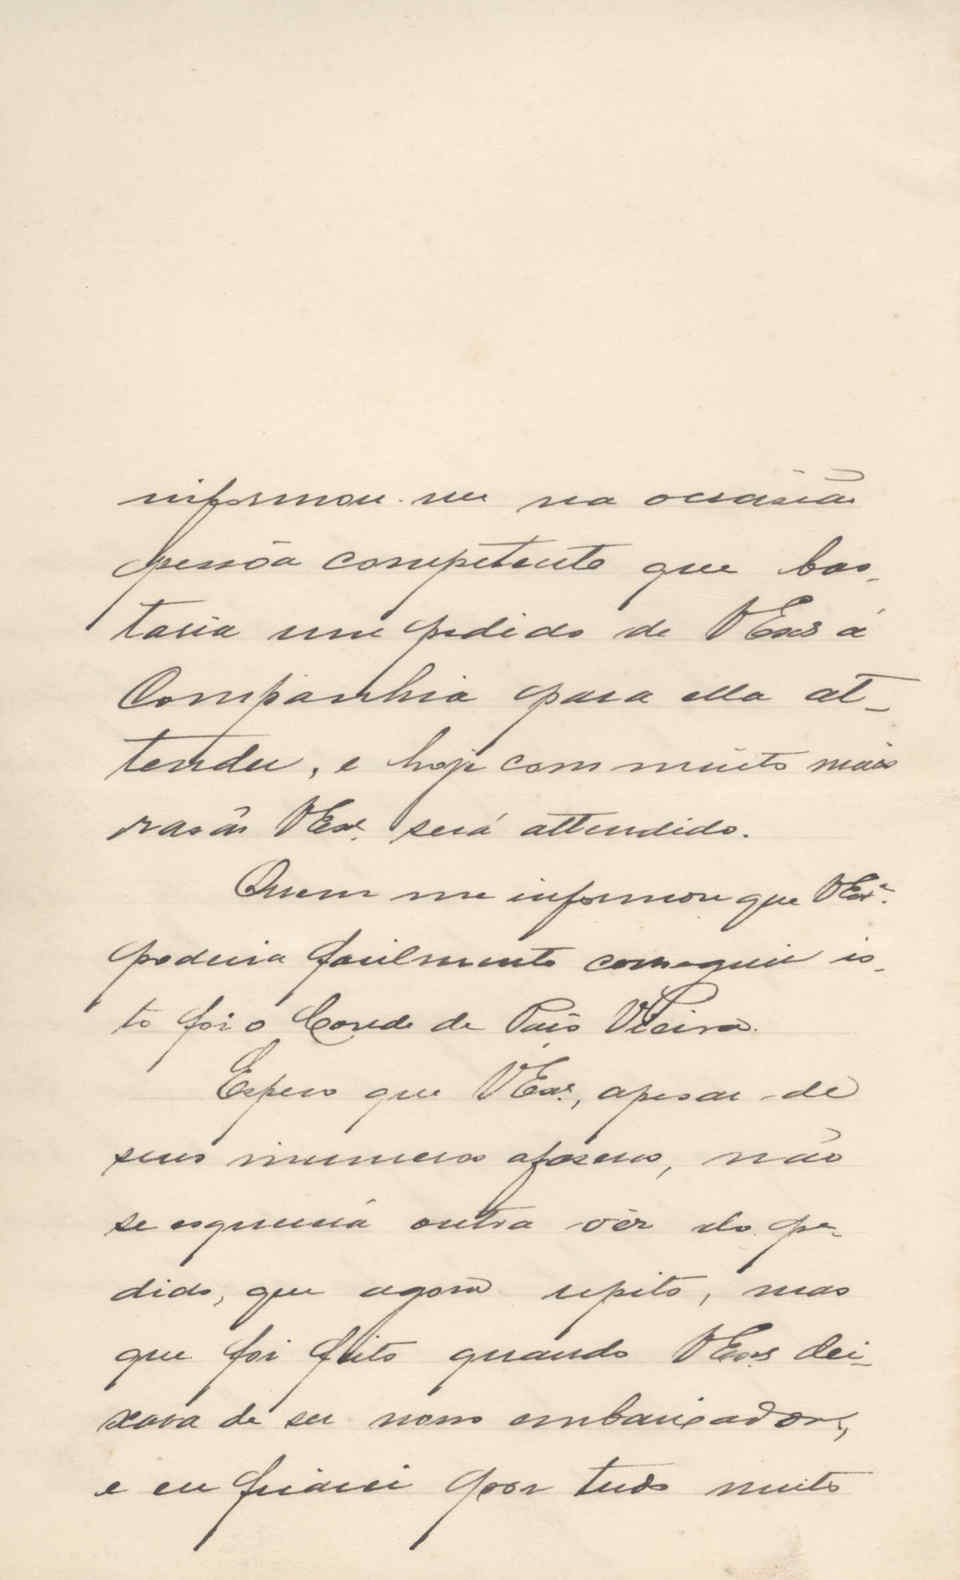 informou-me na occasião
pessôa competente que bas-
taria um pedido de VExª á
Companhia para ella at-
tender, e hoje com muito mais
rasão VExª. será attendido.
Quem me informou que VExª.
poderia facilmente conseguir is-
to foi o Conde de Paço Vieira.
Espero que VExª., apesar de
seus inumeros afazeres, não
se esquecerá outra vêz do pe-
dido, que agora repito, mas
que foi feito quando VExª dei-
xava de ser nosso embaixador,
e eu ficarei por tudo muito